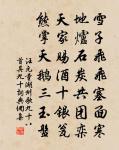 雪子飛飛塞面寒
地爐石炭共團欒
天家賜酒十銀甕
熊掌天鵝三玉盤
汪元量湖州歌九十八
首其九十詞典網集